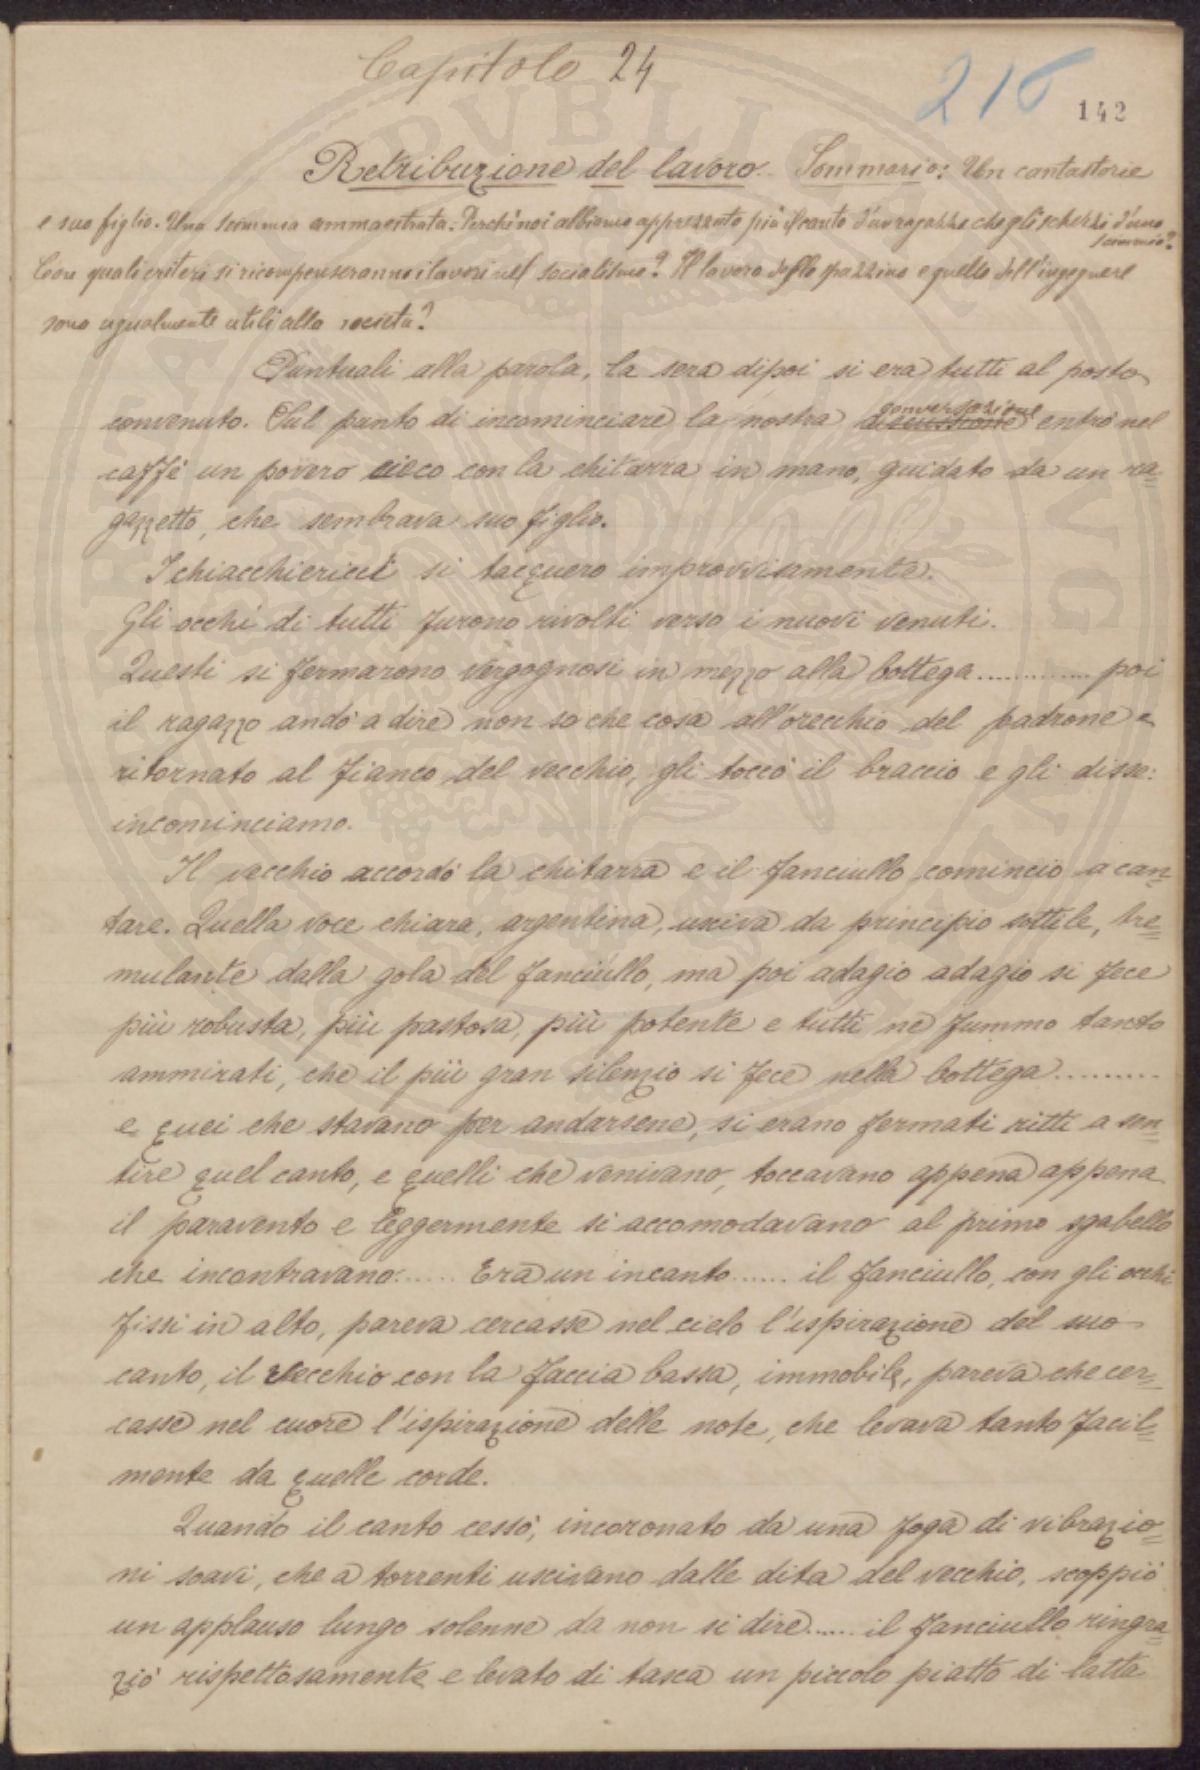 Capitolo 24
216
142
Retribuzione del lavoro. Sommario: Un cantastorie
e suo figlio. Una scimmia ammaestrata. Perchè noi abbiamo apprezzato più il canto d'un ragazzo che gli scherzi d'una
scimmia?
Con quali criteri si ricompenseranno i lavori nel socialismo? Il lavoro dello spazzino e quello dell'ingegnere
sono ugualmente utili alla società?
Puntuali alla parola, la sera dipoi si era tutti al posto
conversazione
convenuto. Sul punto di incominciare la nostra discussione entrò nel
caffè un povero cieco con la chitarra in mano, guidato da un ra=
gazzetto, che sembrava suo figlio.
I chiacchiericci si tacquero improvvisamente.
Gli occhi di tutti furono rivolti verso i nuovi venuti.
Questi si fermarono vergognosi in mezzo alla bottega............. poi
il ragazzo andò a dire non so che cosa all'orecchio del padrone e
ritornato al fianco del vecchio, gli toccò il braccio e gli disse:
incominciamo.
Il vecchio accordò la chitarra e il fanciullo cominciò a can=
tare. Quella voce chiara, argentina, usciva da principio sottile, tre=
mulante dalla gola del fanciullo, ma poi adagio adagio si fece
più robusta, più pastosa, più potente e tutti ne fummo tanto
ammirati, che il più gran silenzio si fece nella bottega..........
e quei che stavano per andarsene, si erano fermati ritti a sen=
tire quel canto, e quelli che venivano, toccavano appena appena
il paravento e leggermente si accomodavano al primo sgabello
che incontravano....... Era un incanto...... il fanciullo, con gli occhi
fissi in alto, pareva cercasse nel cielo l'ispirazione del suo
canto, il vecchio con la faccia bassa, immobile, pareva che cer=
casse nel cuore l'ispirazione delle note, che levava tanto facil=
mente da quelle corde.
Quando il canto cessò, incoronato da una foga di vibrazio=
ni soavi, che a torrenti uscivano dalle dita del vecchio, scoppiò
un applauso lungo solenne da non si dire...... il fanciullo ringra=
ziò rispettosamente e levato di tasca un piccolo piatto di latta